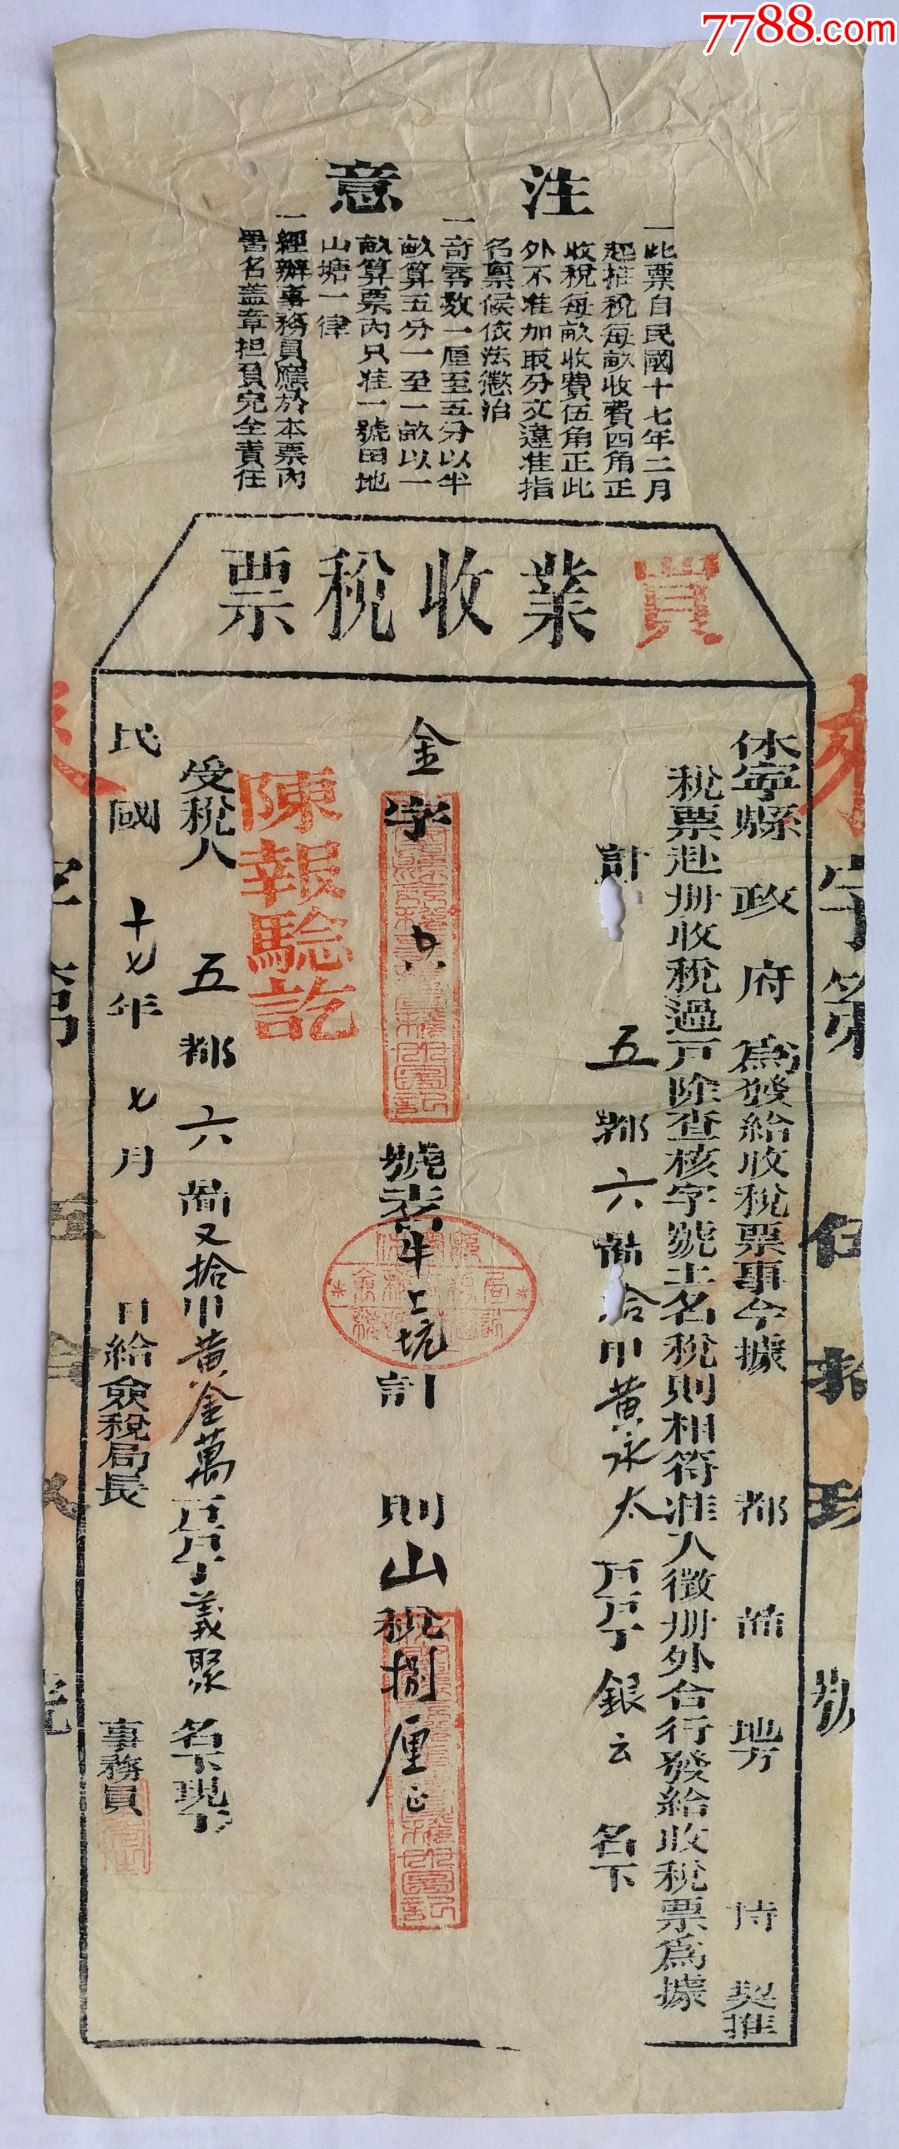 7788.com
注意
一此票自民國十七年二月
起推稅每畝收費四角正
收稅每畝收費伍角正此
外不准加取分文違准指
名稟候依法懲治
一奇零数一厘至五分以半
畝算五分一至一畝以一
畝算票内只准一號田地
山塘一律
一經辦事務員應於本票内
署名盖章担負完全責任
買業收稅票
休寧縣政府為發給收稅票事今據 都 啚 地方 持契推
稅票赴册收稅過戸除查核字號土名稅則相符准入徵册外合行發給收稅票為據
計
五都六啚拾甲黄永太 銀云 名下
金字 號 牛上坑 則山稅捌厘正
陳報騐訖
受稅人 五都六啚又拾甲黄金萬 義聚 名下現
民國十七年七月 日給僉稅局長 事務員
字第伍拾玖號